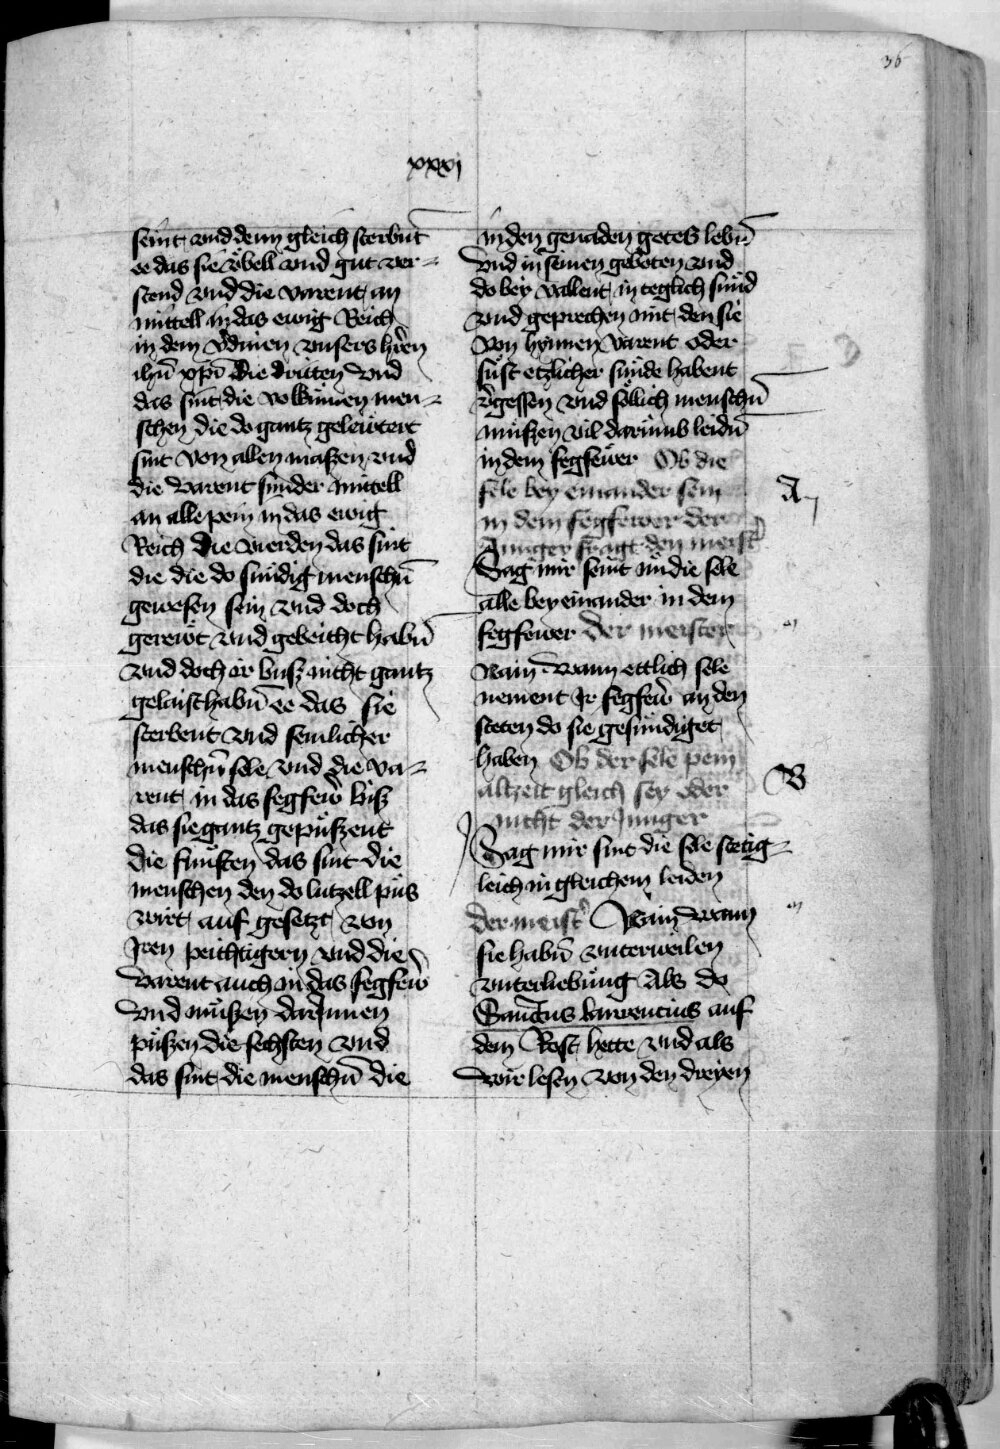 36
xxxj
seint vnd denn gleich sterbnt
ee das sie vͤbell vnd gut ver-
stend vnd die varent an
mittell in das ewig Reich
in dem vͦdinen vnsers hr̄en
ihū xp̄i Die driten vnd
das sint die volkūmen men-
schen die do gantz geleutert
sint von allen maßen vnd
die varent sunder mittell
an alle pein in das ewig
Reich Die vierden das sint
die die do sündig menschn̄
gewesen sein vnd doch
gerewt vnd gebeicht habn̄
vnd doch ir busz nicht gantz
gelaist habn̄ ee das sie
sterbent vnd semlicher
menschn̄ sele vnd die va-
rent in das fegfewr̄ bisz
das sie gantz gepüszent
die funften das sint die
menschen den do lutzell pus
wirt auf gesetzt von
Iren peichtigern vnd die
varent auch in das fegfewr̄
vnd müszen darjnnen
püszen die sechsten vnd
das sint die menschn̄ die
in den genaden gotes lebn̄
vnd in seinen geboten vnd
do bey vallent in teglich sünd
vnd geprechen mit den sie
von hynnen varent oder
süst etzlicher sünde habent
v̄gessen vnd söllich menschn̄
müszen vil darumb leidn̄
in dem fegfewer Ob die
sele bey einander sein
in dem fegfewer der
Junger fragt den meist̄
Sag mir seint nu die sele
alle bey einander in dem
fegfewer der meister
Nain wann ettlich sele
nement Ir fegfewr̄ an den
steten do sie gesundiget
haben Ob der sele pein
altzeit gleich sey oder
nicht der Junger
Sag mir sint die sele stetig-
leich in gleichem leiden
der meist̄ Nain wann
sie habn̄ vnterweilen
vnterliebung Als do
Sanctus laurencius auf
dem Rost hette vnd als
wir lesen von den dreyen
A
B